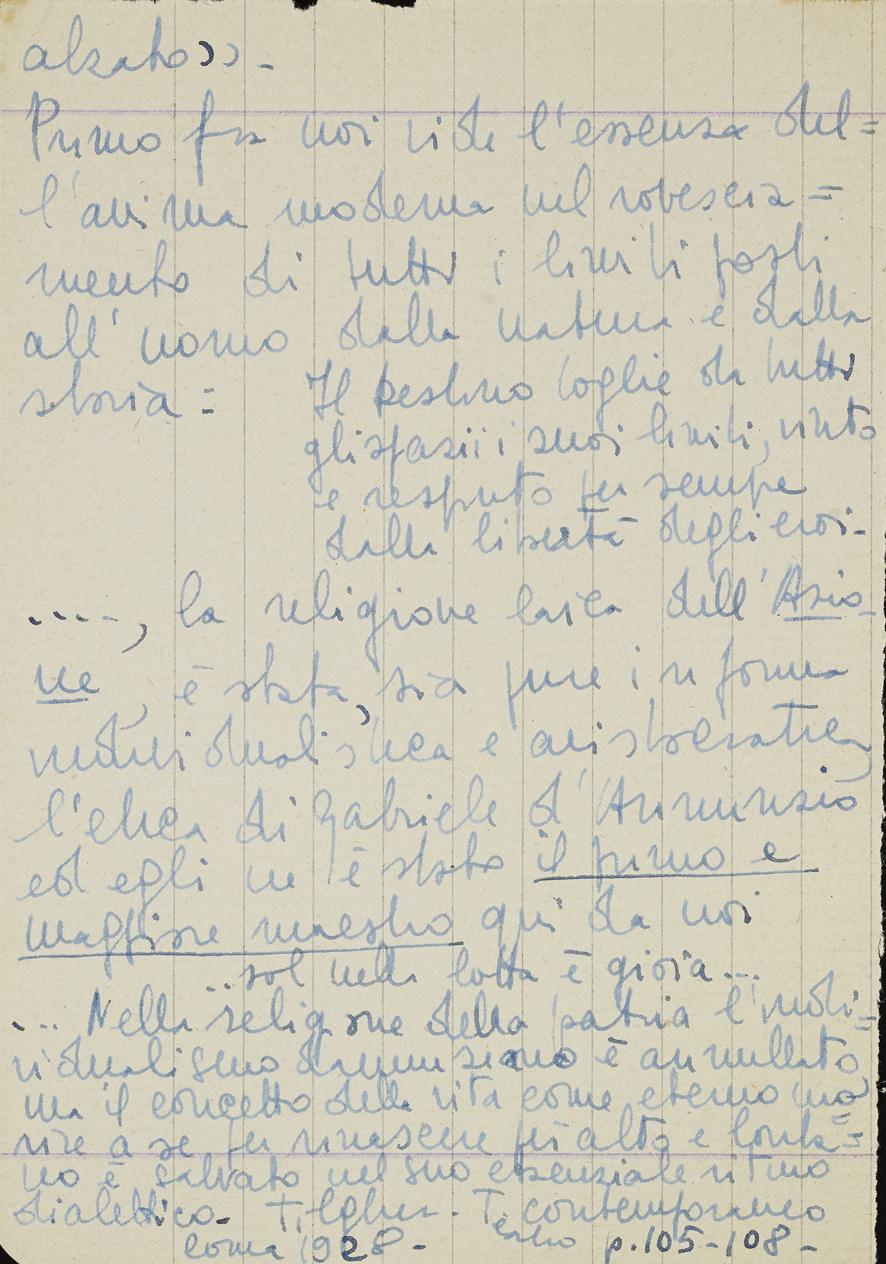 alzato)). -
Primo fra noi vide l'essenza del=
l'anima moderna nel rovescia=
mento di tutti i limiti posti
all'uomo dalla natura e dalla
storia = Il Destino toglie da tutti
gli spazii i suoi limiti, vinto
e respinto per sempre
dalla libertà degli eroi -
...., la religione laica dell'Azio-
ne, è stata, sia pure in forma
individualistica e aristocratica
l'etica di Gabriele d'Annunzio
ed egli ne è stato il primo e
maggiore maestro qui da noi
...sol nella lotta è gioia...
... Nella religione della patria l'indi=
vidualismo dannunziano è annullato
ma il concetto della vita come eterno mo=
rire a se per rinascere più alto e lonta=
no è salvato nel suo essenziale ritmo
dialettico. Tilgher - Teatro contemporaneo
Roma 1928 - p. 105-108 -